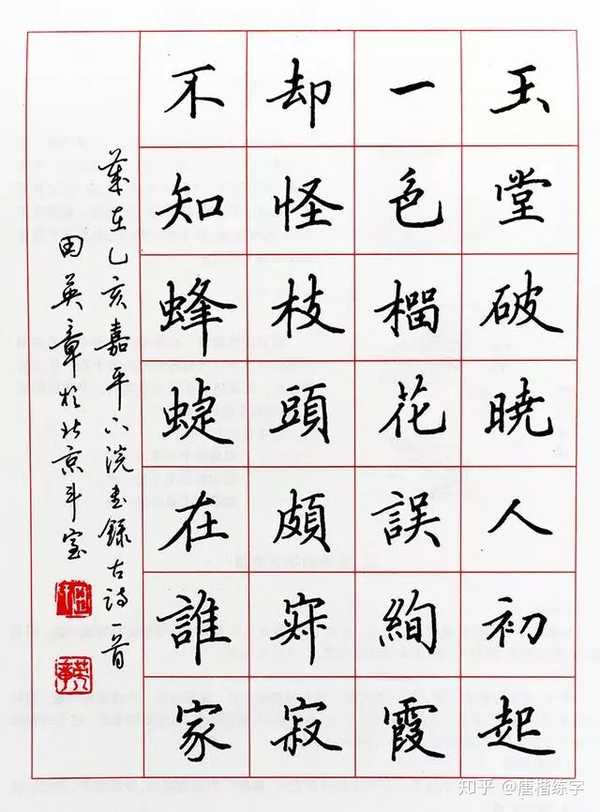 玉堂破曉人初起
一色榴花誤絢霞
却怪枝頭頗寂寂
不知蜂蜨在誰家
歲在乙亥嘉平下浣書錄古詩一首
田英章於北京斗室
知乎 @唐楷练字